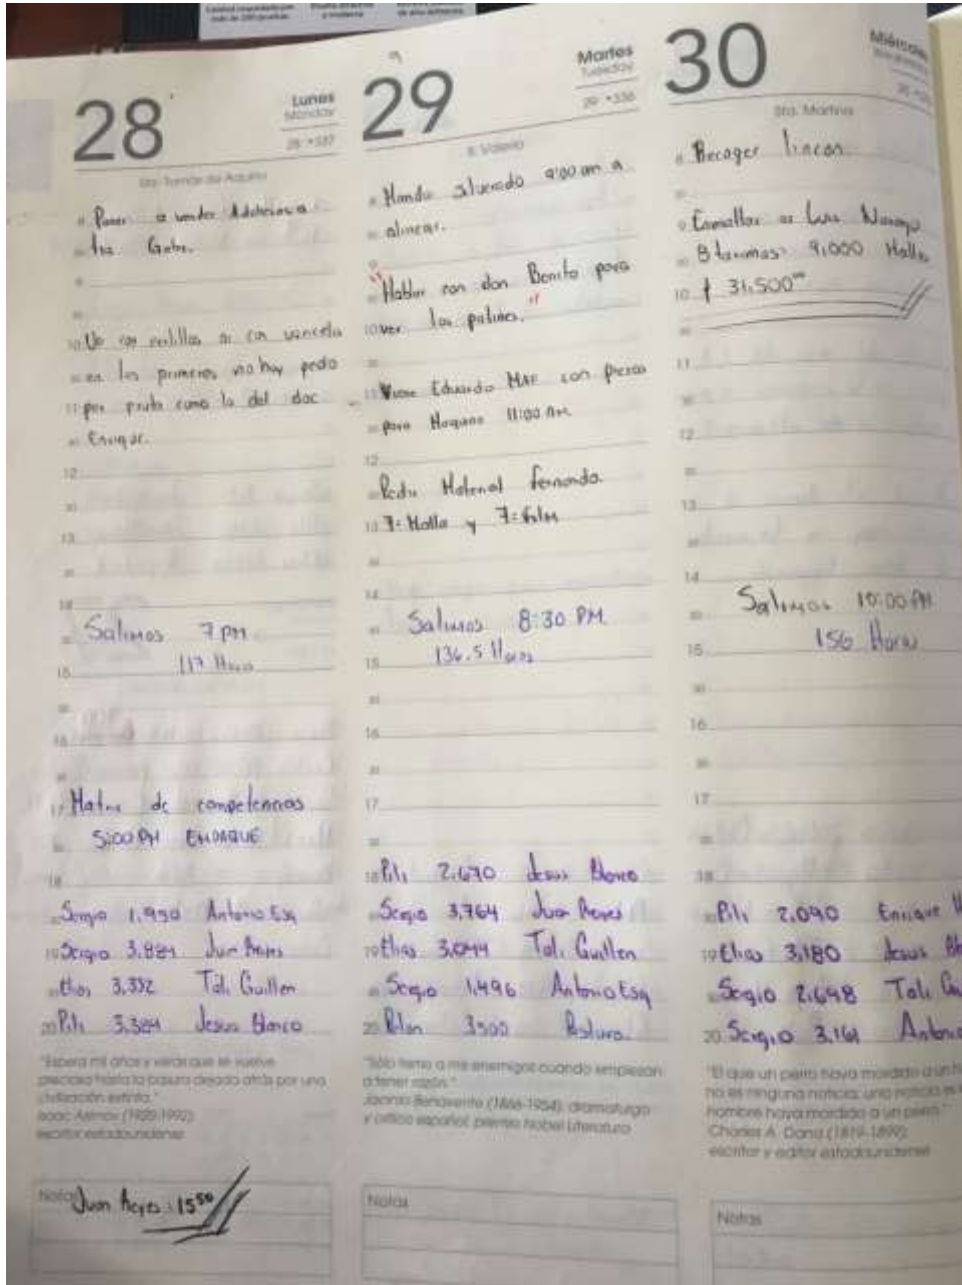 28
Lunes
Monday
28 • 337
Sto. Tomás de Aquino
Poner a vender
Gabr.
en los primeros no hay pedo
como la del doc
Enrique.
Salimos 7 PM
117 Horas
de competencias
5:00 PM EMPAQUE
Sergio 1,950 Antonio Esq
Sergio 3,884 Juan Reyes
Elias 3,352 Toli Guillen
Pili 3,384 Jesus Blanco
"Espera mil años y verás que se vuelve
preciosa hasta la basura dejada atrás por una
civilización extinta."
Isaac Asimov (1920-1992):
escritor estadounidense
Notas
Juan Reyes: 15⁵⁰
29
Martes
Tuesday
29 • 336
S. Valerio
Mandar silverado 9:00 am a
alinear.
"Hablar con don Benito para
ver los patines."
Viene Eduardo MAF con piezas
para Maquina 11:00 Am.
Pedir Material fernando.
7= Malla y 7=
Salimos 8:30 PM
136.5 Horas
Pili 2,670 Jesus Blanco
Sergio 3,764 Juan Reyes
Elias 3,044 Toli Guillen
Sergio 1,496 Antonio Esq
3500 Basura
"Sólo temo a mis enemigos cuando empiezan
a tener razón."
Jacinto Benavente (1866-1954): dramaturgo
y crítico español, premio Nobel Literatura
Notas
30
Miércoles
Sta. Martina
Recoger lincon
Luis Naranjo
8 tarimas: 9,000 Mallas
$ 31,500⁰⁰
Salimos 10:00 PM
156 Horas
Pili 2,090 Enrique
Elias 3,180 Jesus
Sergio 2,648 Toli
Sergio 3,161 Antonio
"El que un perro haya mordido a un
no es ninguna noticia; una noticia es
hombre haya mordido a un perro."
Charles A. Dana (1819-1899):
escritor y editor estadounidense
Notas